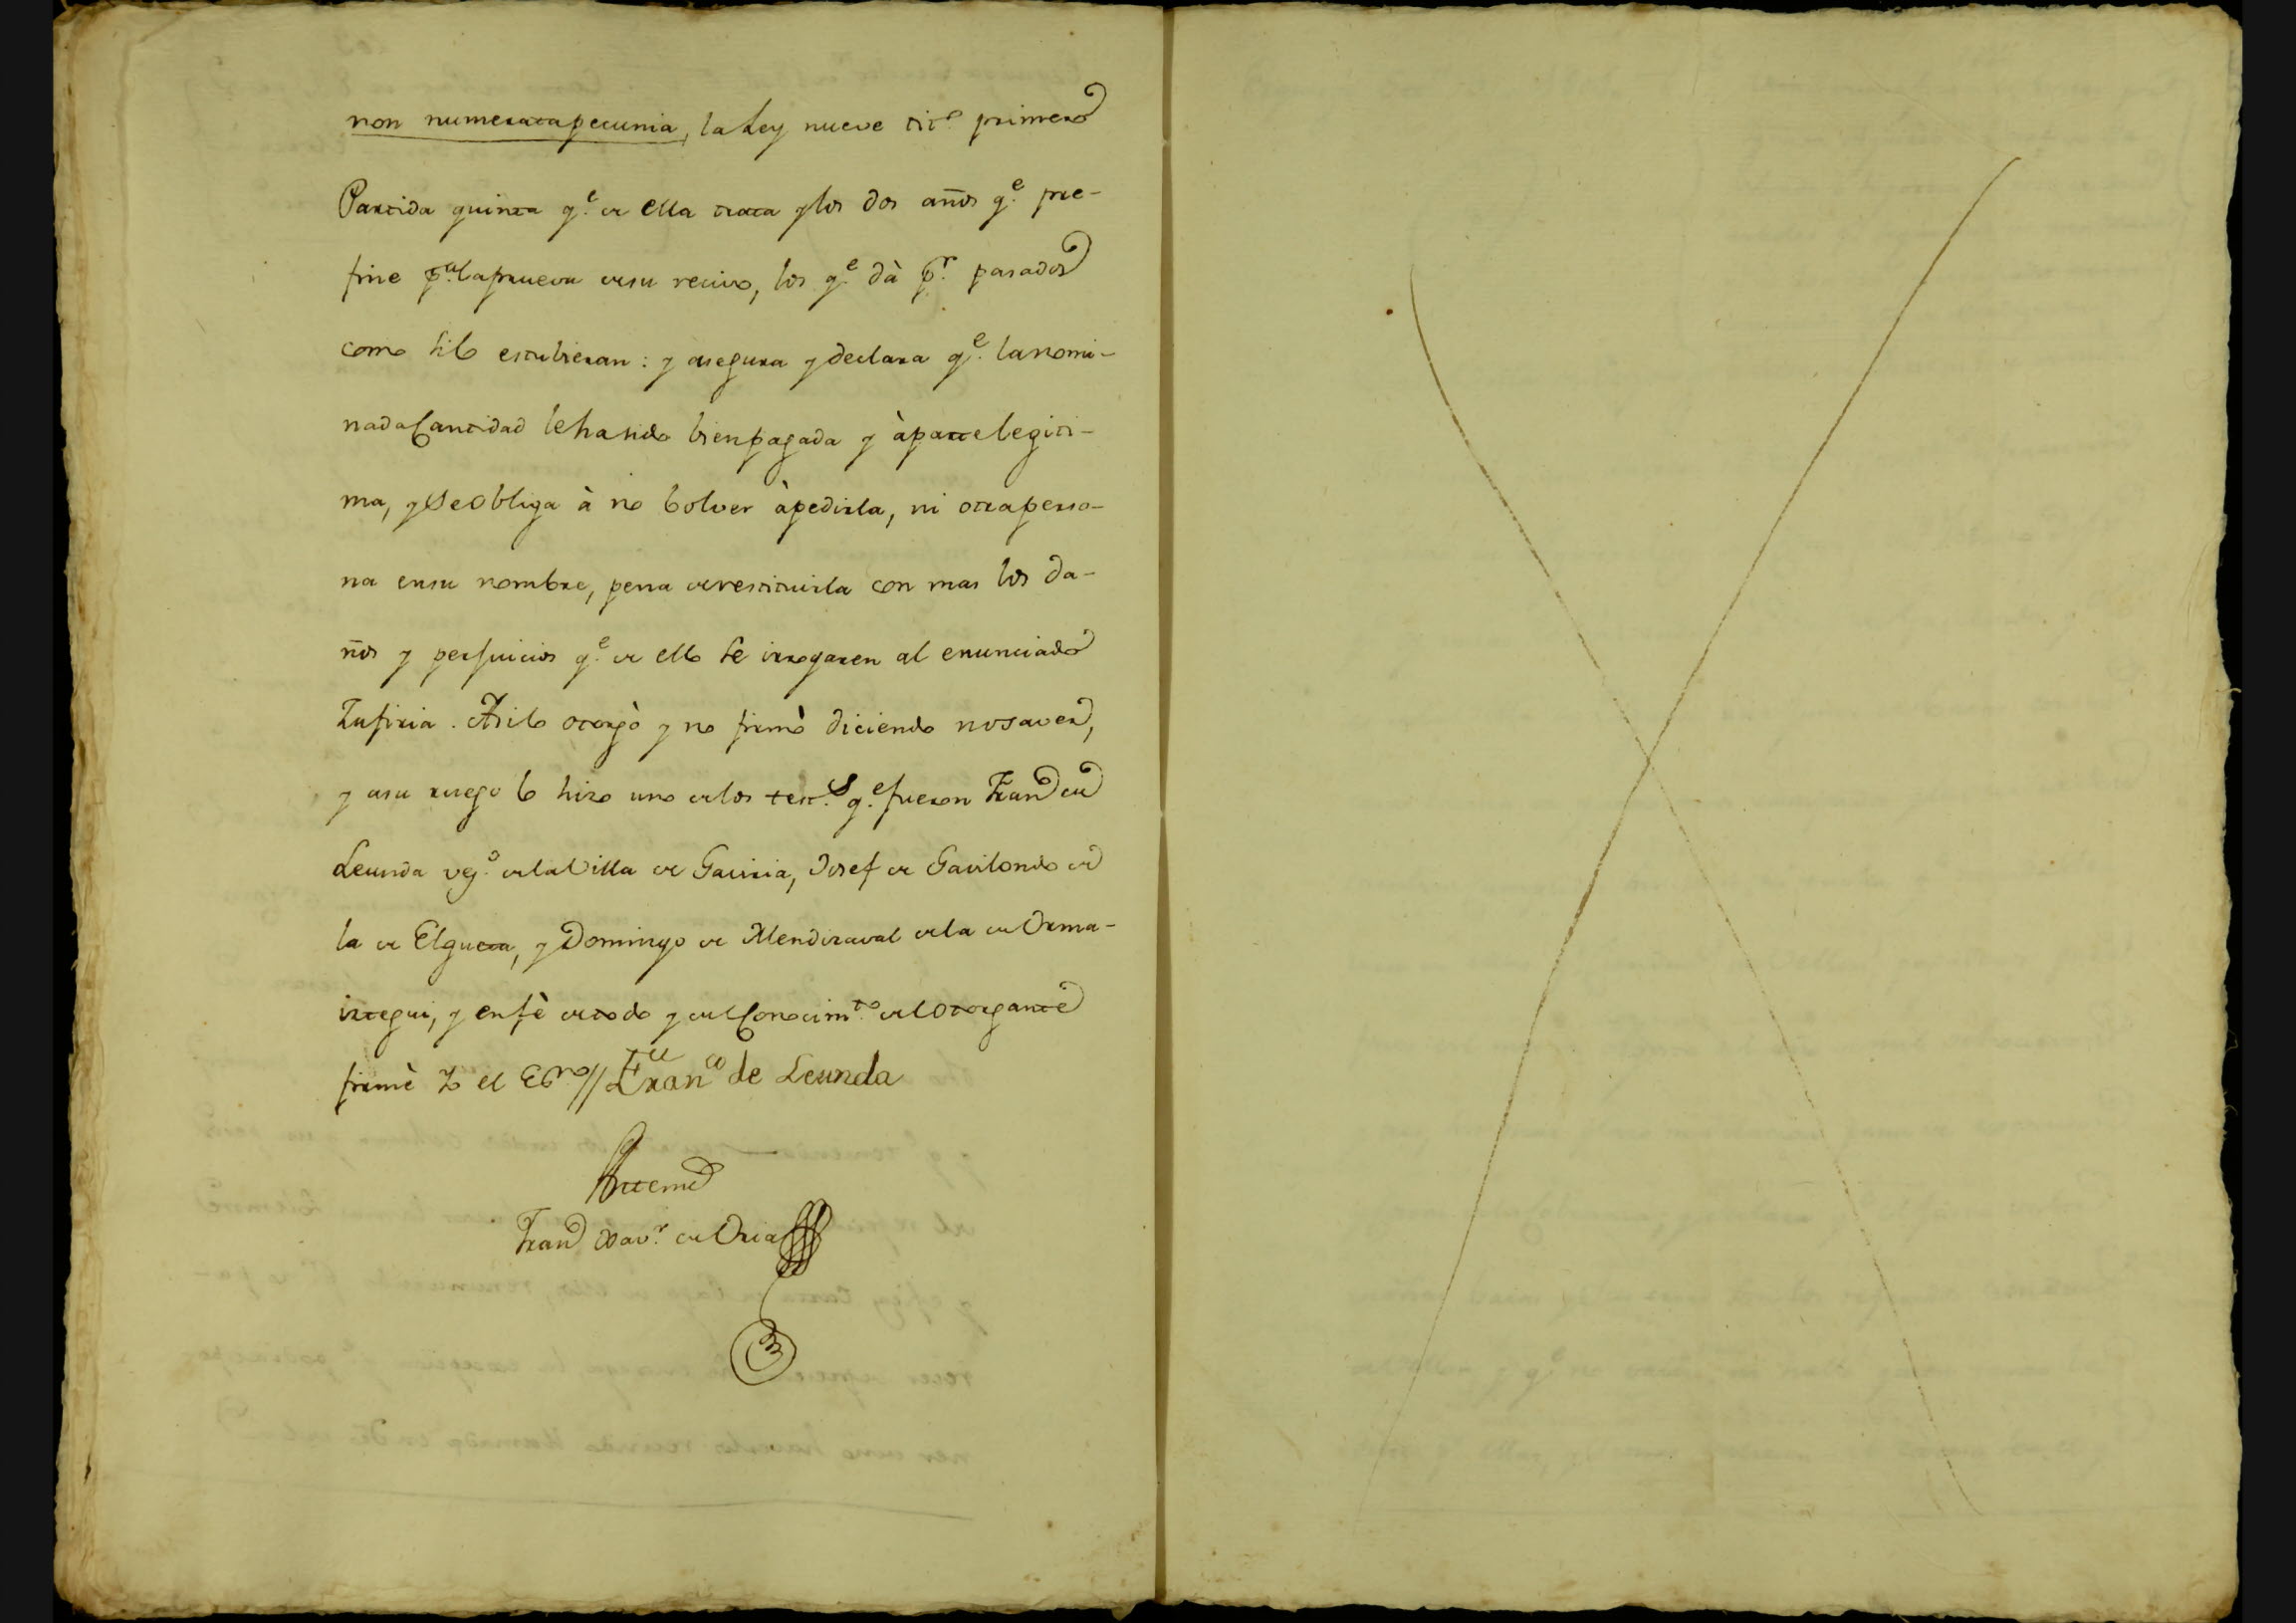 non numerata pecunia, la Ley nueve tit.º primero
Partida quinta q.e de ella trata y los dos años q.e pre-
fine p.a la prueva de su recivo, los q.e dà p.r pasados
como si lo estubieran: y asegura y declara q.e la nomi-
nada Cantidad le ha sido bien pagada y à parte legiti-
ma, y se obliga à no bolver à pedirla, ni otra perso-
na en su nombre, pena de restituirla con mas los da-
ños y perjuicios q.e de ello se irrogaren al enunciado
Asi lo otorgò y no firmò diciendo no saver,
y a su ruego lo hizo uno de los test.s q.e fueron Fran.co de
Leunda vez.o de la Villa de Gaviria, Josef de Gavilondo de
la de Elgueta, y Domingo de Mendizaval de la de Orma-
iztegui, y en fè de todo y del Conocim.to del Otorgante
firmè Yo el Esno // Fran.co de Leunda
Ante mi
Fran.co Xav.r de Oria